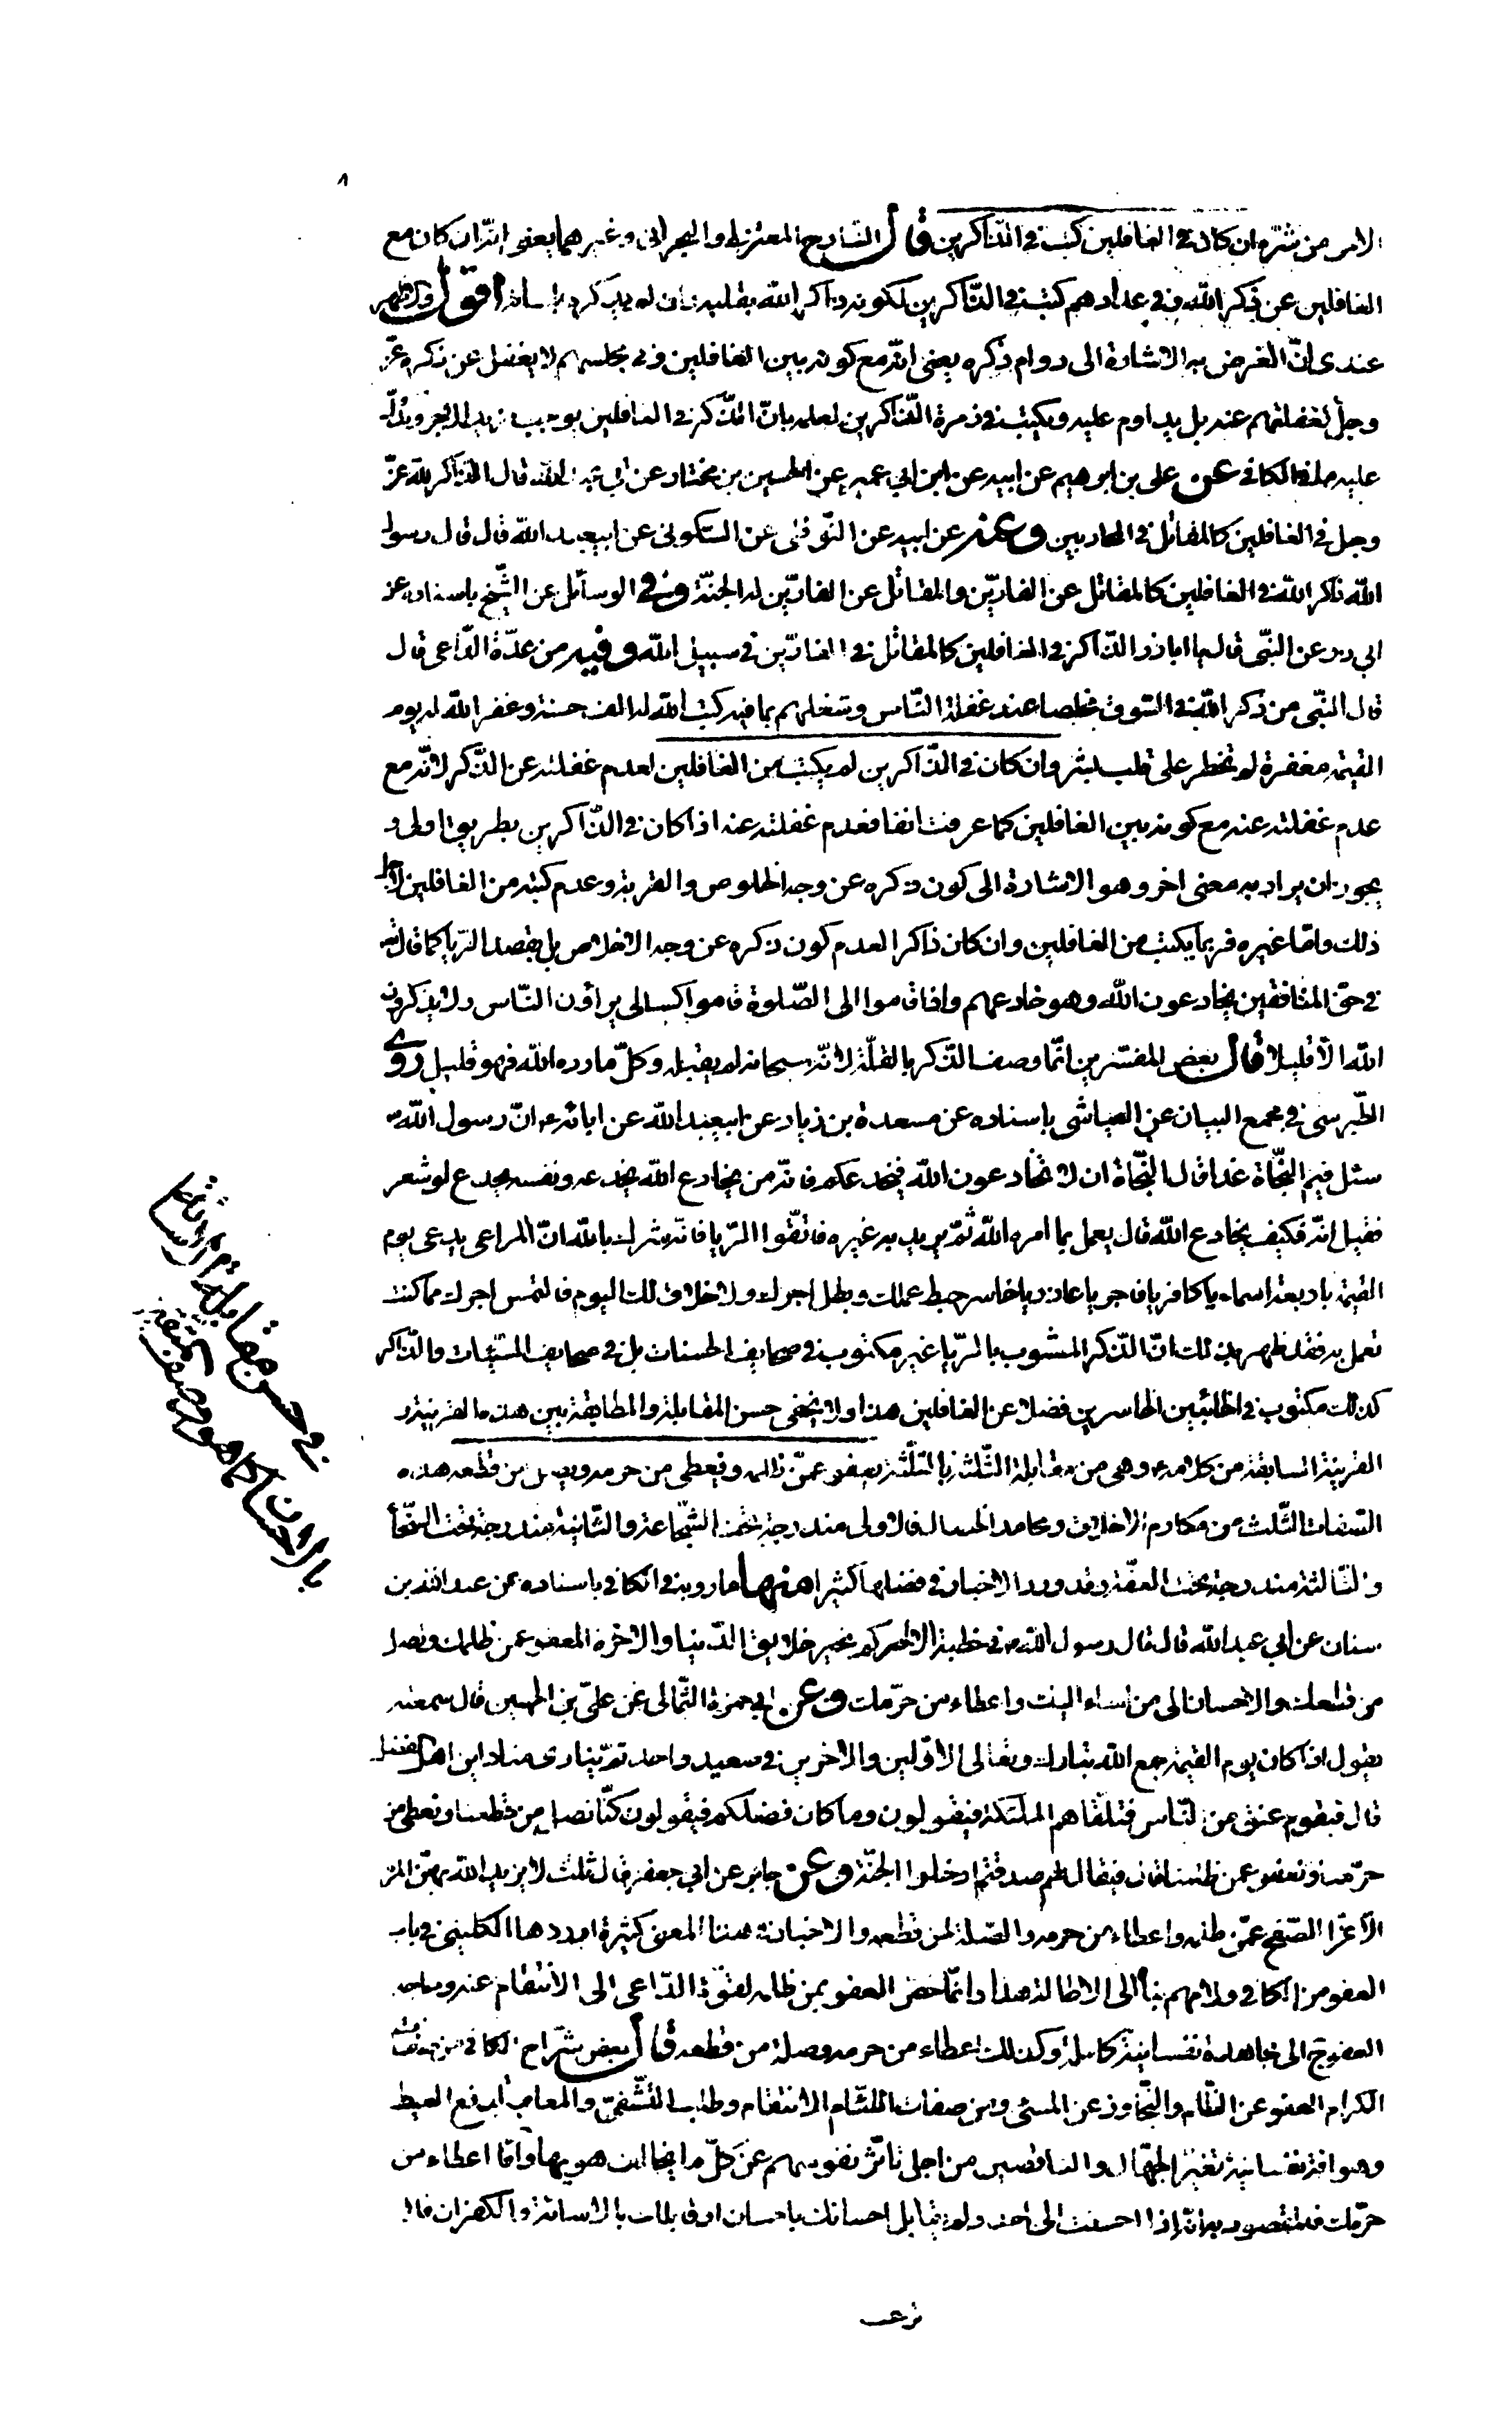 ٨
الامر من شره ان كان فى الغافلين كتب فى الذاكرين قال الشارح المعتزلى والبحرانى وغيرهما يعنى انه ان كان مع
الغافلين عن ذكر الله وفى عدادهم كتب فى الذاكرين لكونه ذاكر الله بقلبه وان لم يذكره بلسانه اقول والاظهر
عندى انّ الغرض به الاشارة الى دوام ذكره يعنى انّه مع كونه بين الغافلين وفى مجلسهم لا يغفل عن ذكره عزّ
وجلّ لغفلتهم عنه بل يداوم عليه ويكتب فى زمرة الذّاكرين لعلمه بانّ الذّكر فى الغافلين يوجب مزيد الاجر ويدلّ
عليه ما فى الكافى عن على بن ابرهيم عن ابيه عن ابن ابي عمير عن الحسين بن مختار عن ابى عبد الله قال الذّاكر لله عزّ
وجل فى الغافلين كالمقاتل فى المحاربين وعنه عن ابيه عن النّوفلى عن السّكونى عن ابيعبد الله قال قال رسول
الله ذاكر الله فى الغافلين كالمقاتل عن الفارّين والمقاتل عن الفارّين له الجنّة وفى الوسائل عن الشّيخ باسناده عن
ابي ذر عن النبّى قال يا اباذر الذّاكر فى الغافلين كالمقاتل فى الفارّين فى سبيل الله وفيه من عدّة الدّاعى قال
قال النبّى من ذكر الله فى السّوق مخلصا عند غفلة النّاس وشغلهم بما فيه كتب الله له الف حسنة وغفر الله له يوم
القيمة مغفرة لم تخطر على قلب بشر وان كان فى الذّاكرين لم يكتب من الغافلين لعدم غفلته عن الذّكر لانّه مع
عدم غفلته عنه مع كونه بين الغافلين كما عرفت انفا فعدم غفلته عنه اذا كان فى الذّاكرين بطريق اولى و
يجوز ان يراد به معنى اخر وهو الاشارة الى كون ذكره عن وجه الخلوص والقربة وعدم كتبه من الغافلين لاجل
ذلك وامّا غيره فربما يكتب من الغافلين وان كان ذاكرا لعدم كون ذكره عن وجه الاخلاص بل بقصد الرّيا كما قال تعالى
فى حقّ المنافقين يخادعون الله وهو خادعهم واذا قاموا الى الصّلوة قاموا كسالى يراؤن النّاس ولا يذكرون
الله الّا قليلا قال بعض المفسّرين انّما وصف الذّكر بالقلّة لانّه سبحانه لم يقبله وكلّ ما ردّه الله فهو قليل روى
الطّبرسى فى مجمع البيان عن العيّاشى باسناده عن مسعدة بن زياد عن ابيعبد الله عن ابائه ع انّ رسول الله ص
سئل فيم النّجاة غدا قال النّجاة ان لا تخادعون الله فيخدعكم فانّه من يخادع الله يخدعه ونفسه يخدع لو شعر
فقيل له فكيف يخادع الله قال يعمل بما امره الله ثمّ يريد به غيره فاتّقوا الرّيا فانّه شرك بالله انّ المراعى يدعى يوم
القيمة باربعة اسماء يا كافر يا فاجر يا غادر يا خاسر حبط عملك وبطل اجرك ولا خلاق لك اليوم فالتمس اجرك ممن كنت
تعمل به فقد ظهر بذلك انّ الذّكر المشوب بالرّيا غير مكتوب فى صحايف الحسنات بل فى صحايف السّيّئات والذّاكر
كذلك مكتوب فى الخائبين الخاسرين فضلا عن الغافلين هذا ولا يخفى حسن المقابلة والمطابقة بين هذه القرينة و
القرينة السّابقة من كلامه وهى من مقابلة الثّلثة بالثّلثة يعفو عمّن ظلمه ويعطى من حرمه ويصل من قطعه هذه
الصّفات الثّلث من مكارم الاخلاق ومحامد الخصال فالاولى مندرجة تحت الشّجاعة والثّانية مندرجة تحت السّخاء
والثّالثة مندرجة تحت العفّة وقد ورد الاخبار فى فضلها كثيرا منها ما رويه فى الكافى باسناده عن عبد الله بن
سنان عن ابي عبد الله قال قال رسول الله ص فى خطبة الا اخبركم بخير خلايق الدّنيا والاخرة العفو عمن ظلمك وتصل
من قطعك والاحسان الى من اساء اليك واعطاء من حرّمك وعن ابي حمزة الثّمالى عن علىّ بن الحسين قال سمعته
يقول اذا كان يوم القيمة جمع الله تبارك وتعالى الاوّلين والاخرين فى صعيد واحد ثمّ ينادى مناد اين اهل الفضل
قال فيقوم عنق من النّاس فتلقّاهم الملئكة فيقولون وما كان فضلكم فيقولون كنّا نصل من قطعنا ونعطى من
حرّمنا ونعفو عمن ظلمنا قال فيقال لهم صدقتم ادخلوا الجنّة وعن جابر عن ابي جعفر قال ثلث لا يزيد الله بهنّ المرء
الّا عزّا الصّفح عمّن ظلمه واعطاء من حرمه والصّلة لمن قطعه والاخبار فى هذا المعنى كثيرة اوردها الكلينى فى باب
العفو من الكافى ولا مهم بنا الى الاطالة هذا وانّما خصّ العفو بمن ظلمه لقوّة الدّاعى الى الانتقام عنه وساحة
العفو يحتاج الى مجاهدة نفسانيّة كاملة وكذلك اعطاء من حرمه وصلة من قطعه قال بعض شرّاح الكافى من صفات
الكرام العفو عن الظّالم والتّجاوز عن المسئ ومن صفات اللئام الانتقام وطلب التّشفّى والمعاقبة لدفع الغيظ
وهو افة نفسانية تغيّر الجهّال والناقصين من اجل تاثّر نفوسهم عن كلّ ما يخالف هويها وامّا اعطاء من
حرّمك فالمقصود به انّه اذا احسنت الى احد ولم يقابل احسانك باحسان او قابلك بالاسائة والكفران فلا
ترغب
فى حسن مقابلة
بالاحسان كما هو